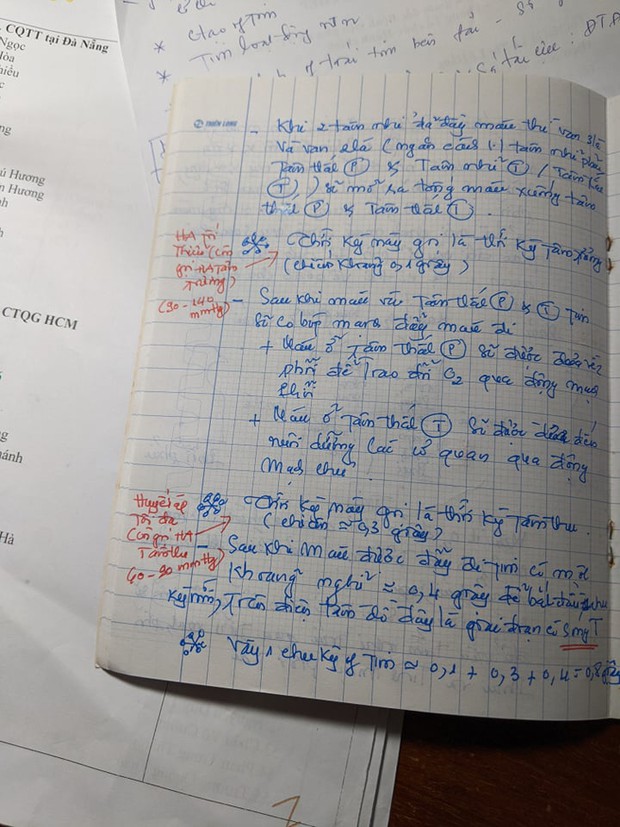 CQTT tại Đà Nẵng
Ngọc
Hương
Hương
CTQG HCM
Hà
THIÊN LONG
- Khi 2 tâm nhĩ đẩy máu thì van 3 lá
và van 2 lá (ngăn cách tâm nhĩ phải
Tâm thất (P) & Tâm nhĩ (T) / Tâm thất
(T)) sẽ mở ra tống máu xuống tâm
thất (P) & Tâm thất (T).
HA tối
Thiểu (còn
gọi HA Tâm
trương)
(90-140
mmHg)
Thời kỳ này gọi là thời kỳ tâm trương
(chiếm khoảng 0,1 giây)
- Sau khi máu về Tâm thất (P) & (T) Tim
sẽ co bóp mạnh đẩy máu đi
+ Máu ở Tâm thất (P) sẽ được đưa về
phổi để Trao đổi O2 qua động mạch
phổi
+ Máu ở Tâm thất (T) sẽ được đưa đến
nuôi dưỡng các cơ quan qua động
mạch chủ.
Huyết áp
Tối đa
Còn gọi HA
Tâm thu
60-90 mmHg)
Thời kỳ này gọi là thời kỳ Tâm thu.
(chiếm ≈ 0,3 giây)
- Sau khi máu được đẩy đi tim có một
khoảng nghỉ ≈ 0,4 giây để bắt đầu chu
kỳ mới, Trên điện tâm đồ đây là giai đoạn có sóng T
Vậy 1 chu kỳ của Tim ≈ 0,1 + 0,3 + 0,4 = 0,8 giây